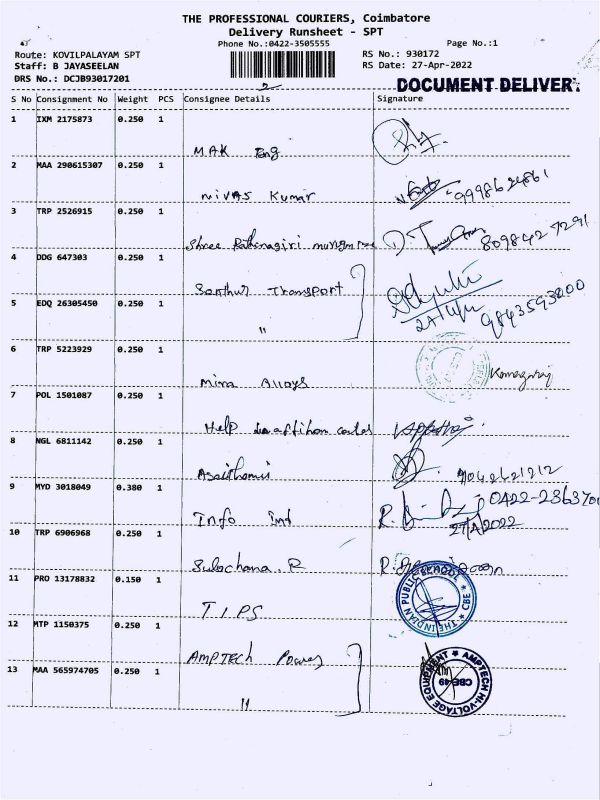 THE PROFESSIONAL COURIERS, Coimbatore
Delivery Runsheet - SPT
Phone No.:0422-3505555
Page No.:1
Route: KOVILPALAYAM SPT
RS No.: 930172
Staff: B JAYASEELAN
RS Date: 27-Apr-2022
DRS No.: DCJB93017201
DOCUMENT DELIVERY
S No Consignment No Weight PCS Consignee Details Signature
1 IXM 2175873 0.250 1
MAK Eng
2 MAA 290615307 0.250 1
Nivas Kumar
3 TRP 2526915 0.250 1
Shree
8098427291
4 DDG 647303 0.250 1
Santhur Transport
5 EDQ 26305450 0.250 1
"
9843593000
6 TRP 5223929 0.250 1
Mina Alloys
7 POL 1501087 0.250 1
Help
8 NGL 6811142 0.250 1
9042621212
9 MYD 3018049 0.380 1
Info Int
27/4/2022
10 TRP 6906968 0.250 1
Sulochana R
11 PRO 13178832 0.150 1
TIPS
THE INDIAN PUBLIC SCHOOL * CBE *
12 MTP 1150375 0.250 1
AMPTECH Power
13 MAA 565974705 0.250 1
"
AMPTECH HI-VOLTAGE EQUIPMENT *
CBE-49